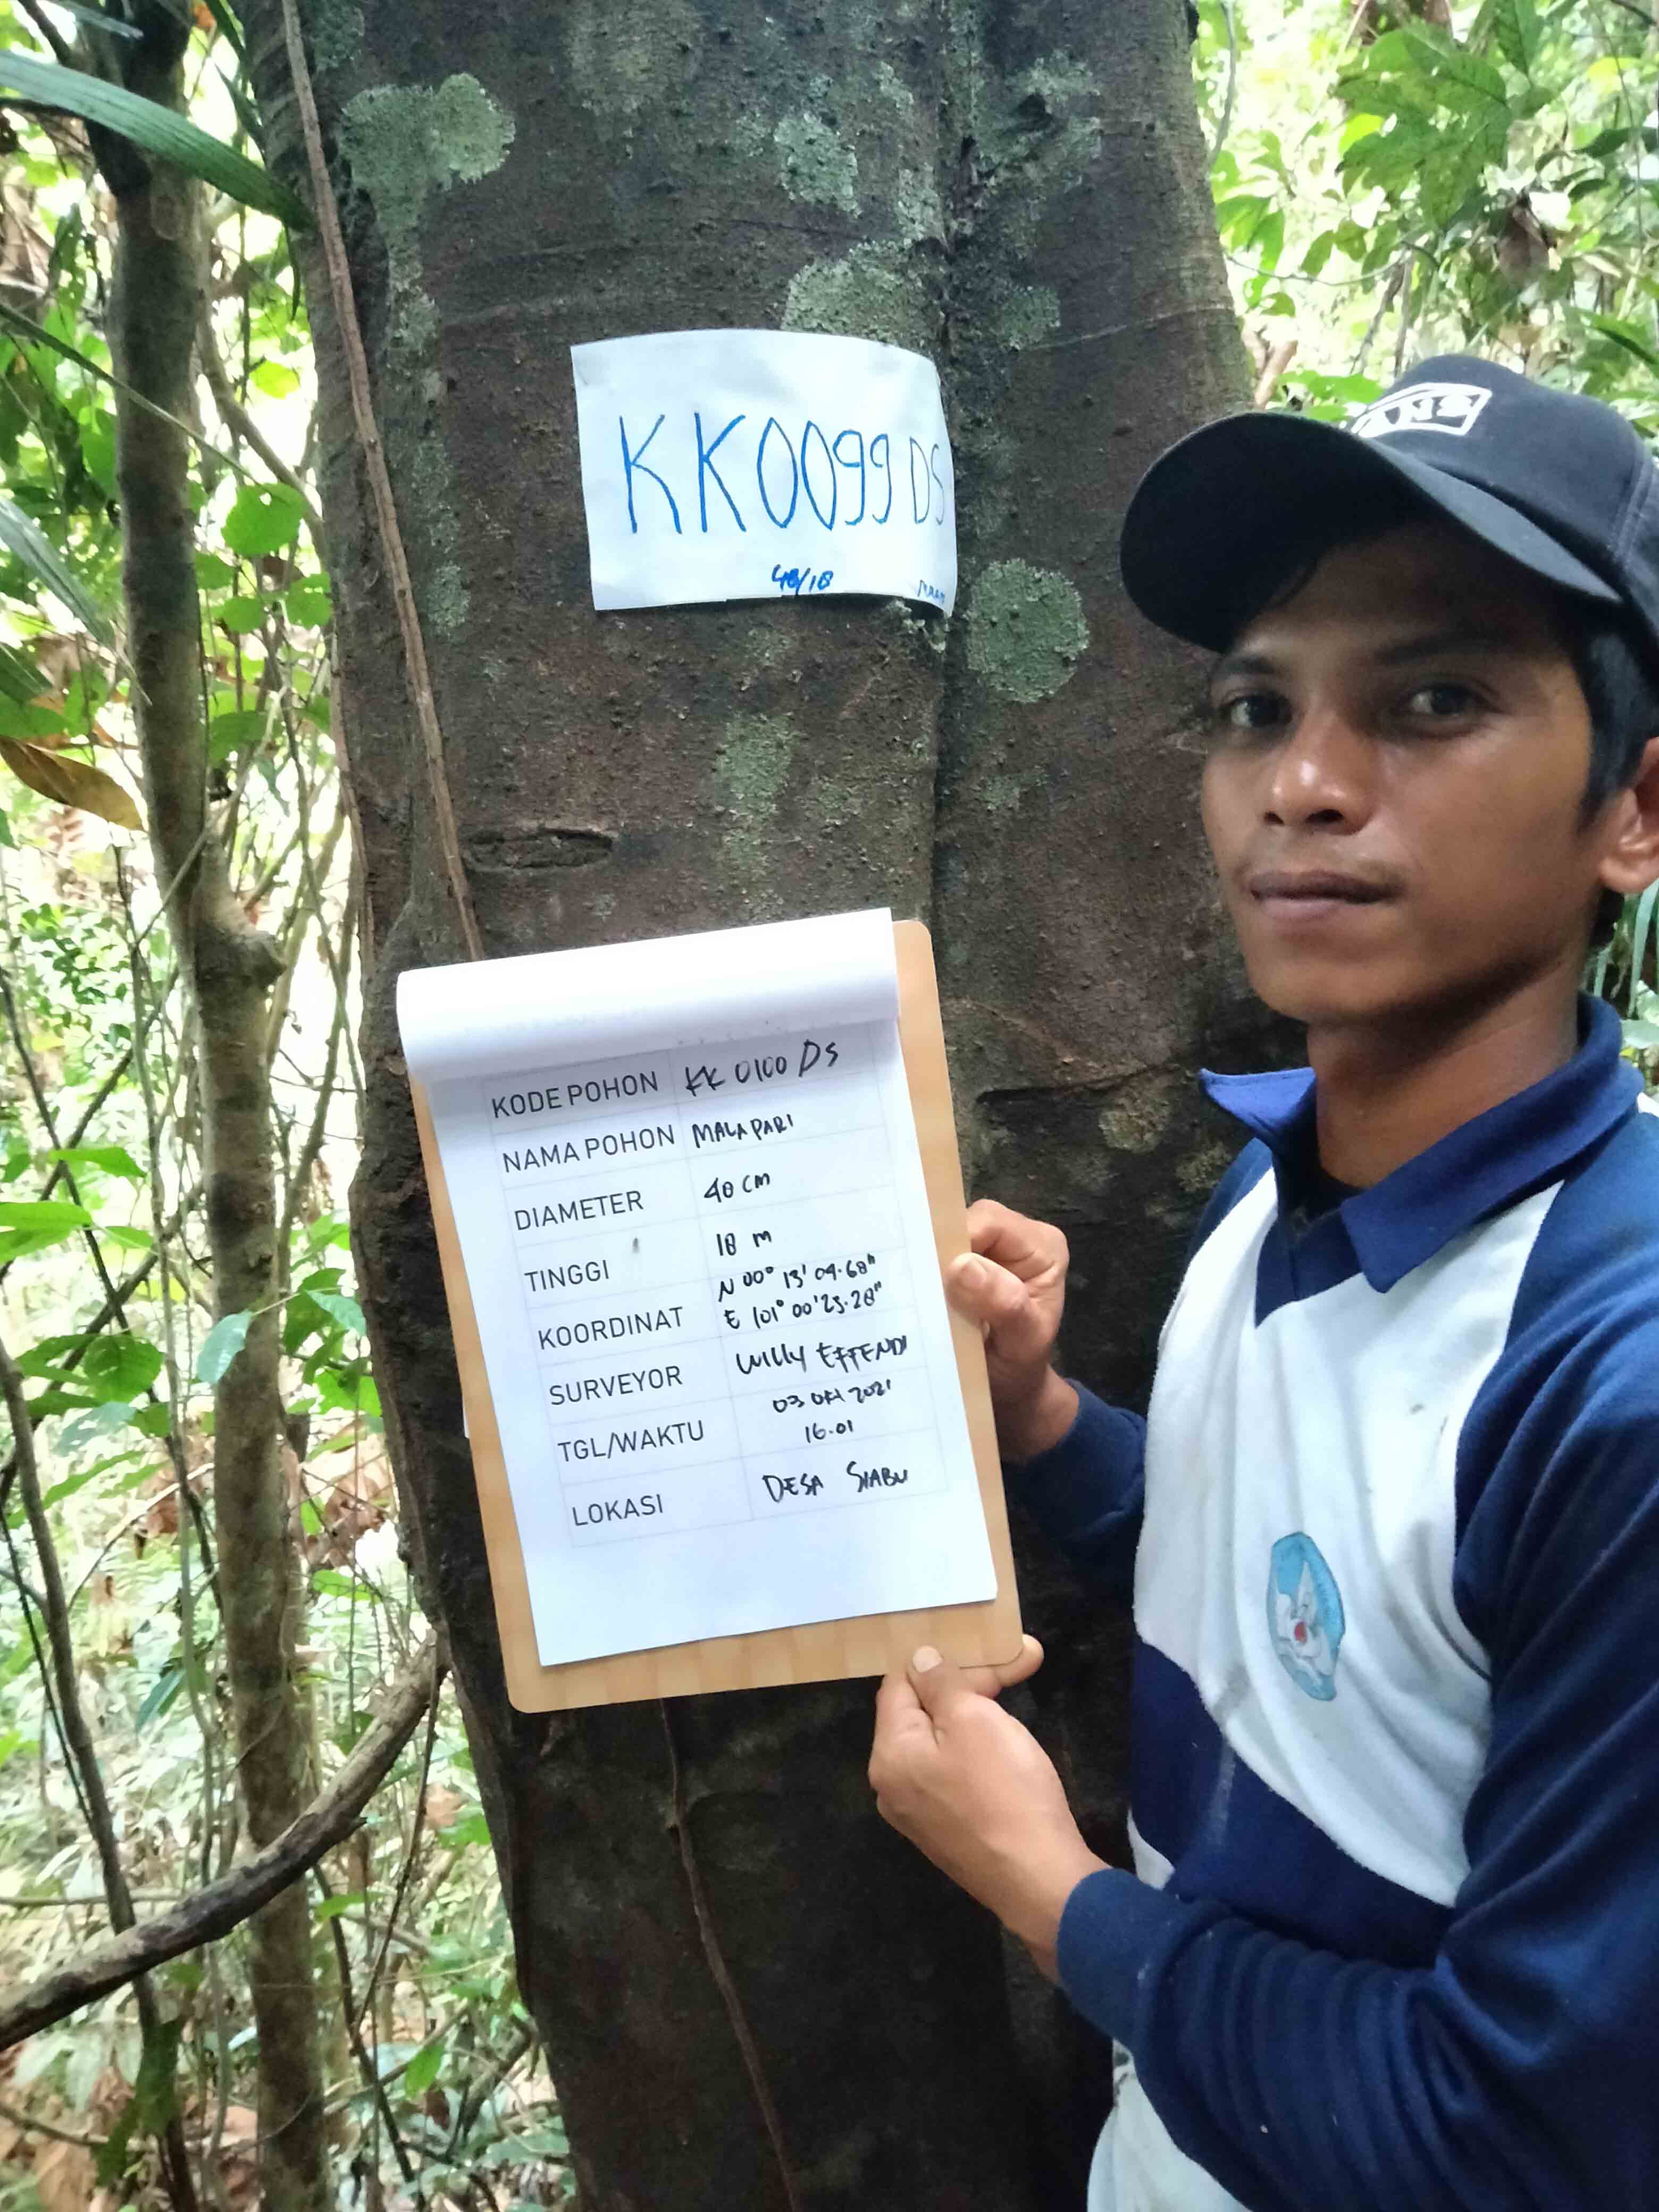 KK0099 DS
48/18
ANS
KODE POHON KK 0100 DS
NAMA POHON MALAPARI
DIAMETER 48 cm
TINGGI 18 m
KOORDINAT N 00° 13' 09.68"
E 101° 00' 25.28"
SURVEYOR WILLY EFFENDI
TGL/WAKTU 03 Okt 2021
16.01
LOKASI DESA SIABU